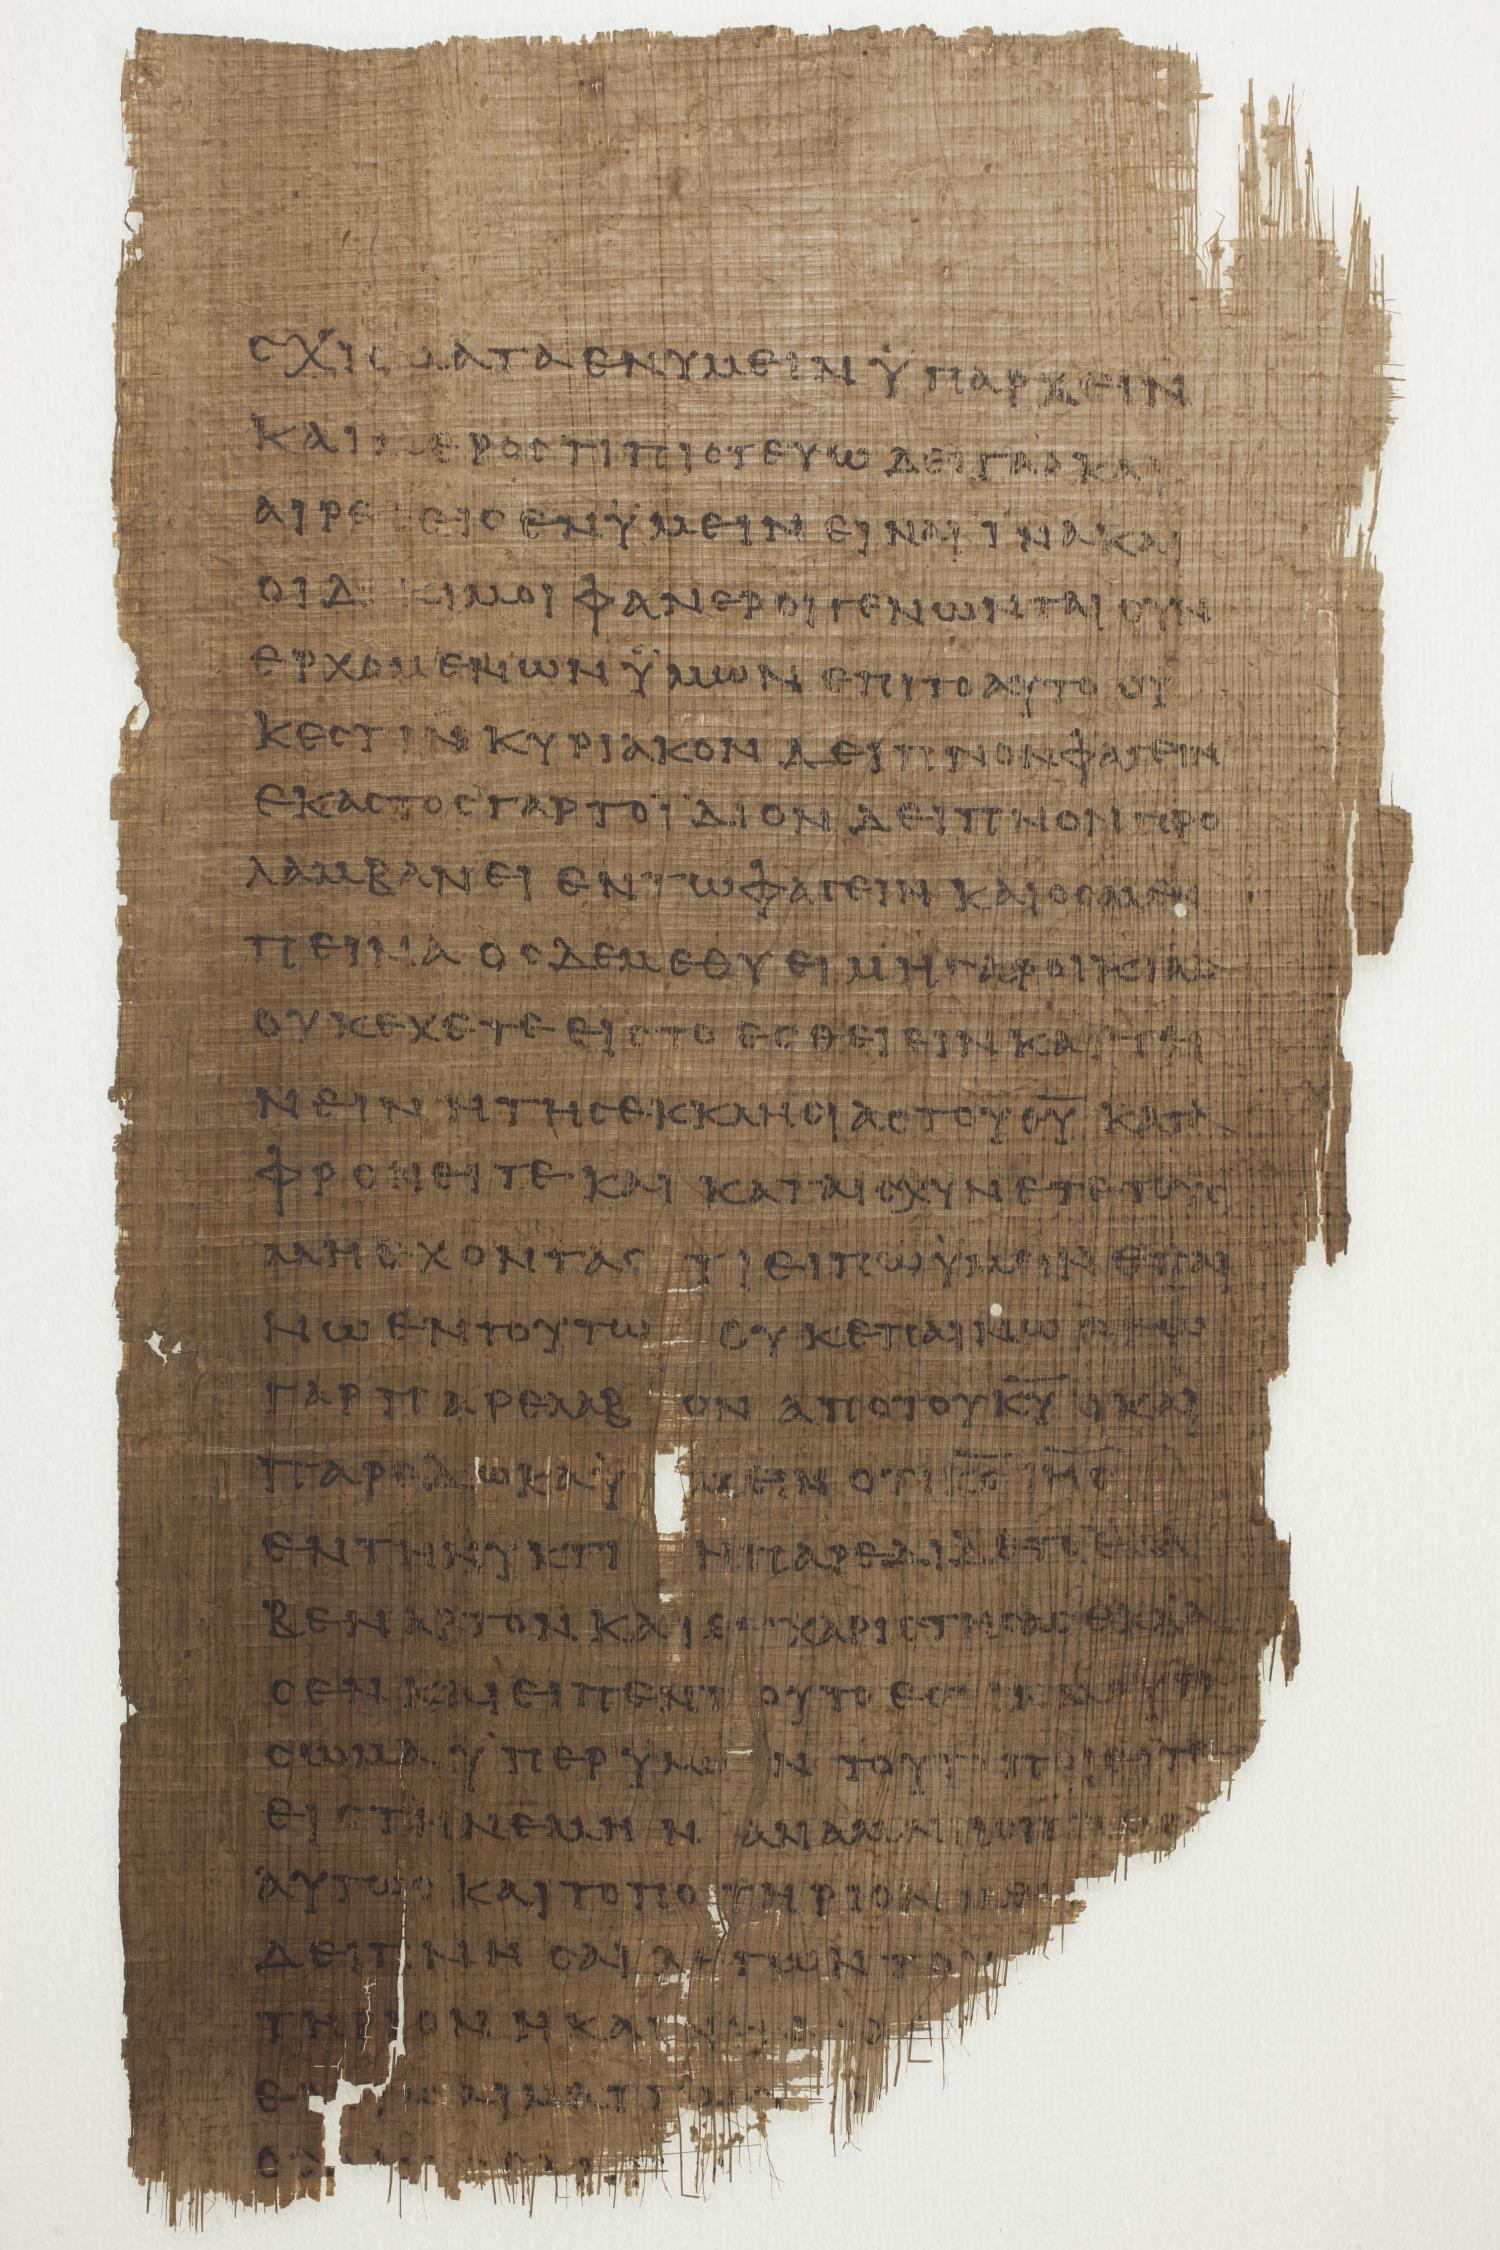 σχισματα εν υμειν ϋπαρχειν
και μερος τι πιστευω δει γαρ και
αιρεσεις εν ϋμειν ειναι ϊνα και
οι δοκιμοι φανεροι γενωνται συν
ερχομενων ϋμων επι το αυτο ου
κ εστιν κυριακον δειπνον φαγειν
εκαστος γαρ το ϊδιον δειπνον προ
λαμβανει εν τω φαγειν και ος μεν
πεινα ος δε μεθυει μη γαρ οικιας
ουκ εχετε εις το εσθειειν και πει
νειν η της εκκλησιας του θ̅υ̅ κατα
φρονειτε και καταισχυνετε τους
μη εχοντας τι ειπω ϋμειν επαι
νω εν τουτω ουκ επαινω εγω
γαρ παρελαβον απο του κ̅υ̅ ο και
παρεδωκα ϋμειν οτι κ̅ς̅ ι̅η̅ς̅
εν τη νυκτι η παρεδιδετο ελα
βεν αρτον και ευχαριστησας εκλα
σεν και ειπεν τουτο εστιν μου το
σωμα ϋπερ ϋμων τουτο ποιειτε
εις την εμην αναμνησιν
αυτως και το ποτηριον μετα
δειπνησαι λεγων το
τηριον η καινη δια
εν αιματι
οσ